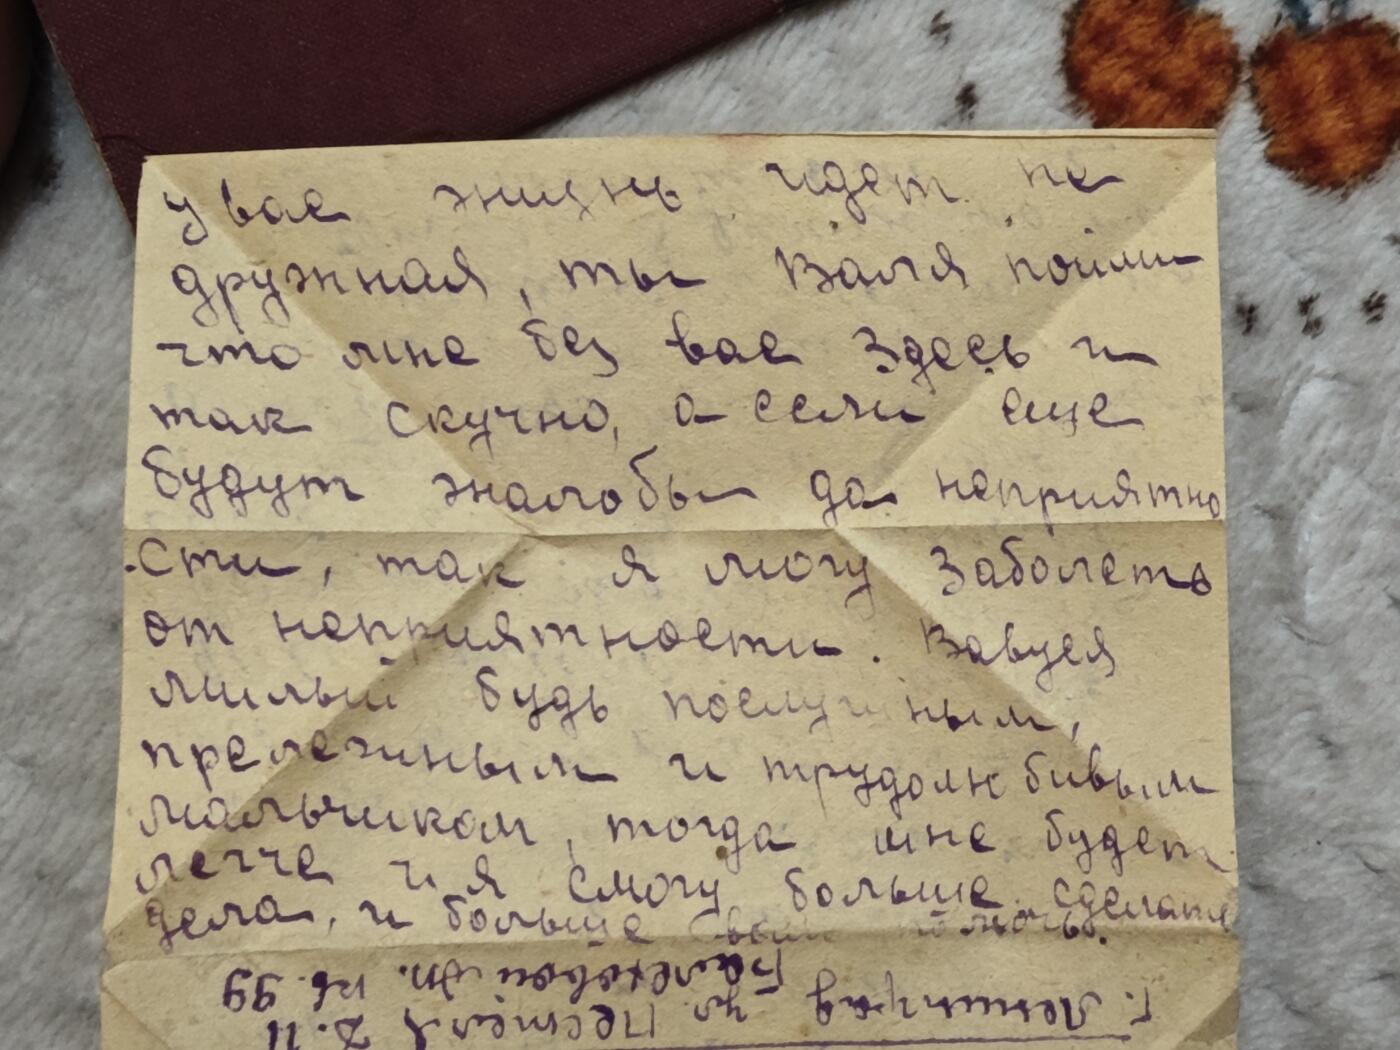 у вас жизнь идет не
дружная, ты Валя пойми
что мне без вас здесь и
так скучно, а если еще
будут жалобы да неприятно
сти, так я могу заболеть
от неприятности. Вавуся
милый будь послушным,
прележным и трудолюбивым
мальчиком, тогда мне будет
легче и я смогу больше сделать
дела, и больше вам помочь.
г. Ленинград ул. Пестеля д. 11
Балеховой А.П. кв. 99